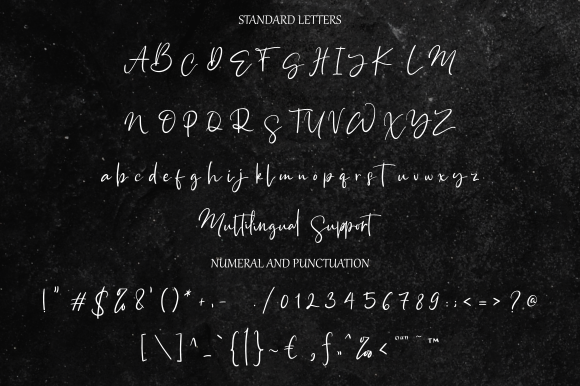 STANDARD LETTERS
A B C D E F G H I J K L M
N O P Q R S T U V W X Y Z
a b c d e f g h i j k l m n o p q r s t u v w x y z
Multilingual Support
NUMERAL AND PUNCTUATION
! " # $ % & ' ( ) * + , - . / 0 1 2 3 4 5 6 7 8 9 : ; < = > ? @
[ \ ] ^ _ ` { | } ~ € , ƒ „ ˆ ‰ ‹ “” ˜ ™